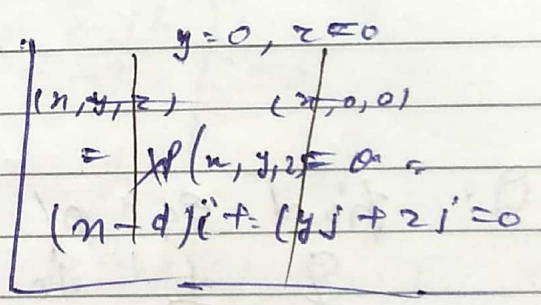 y = 0, z = 0
(x, y, z) (x, 0, 0)
= (x, y, z) = 0 =
(x - d)i + (yj + zj = 0